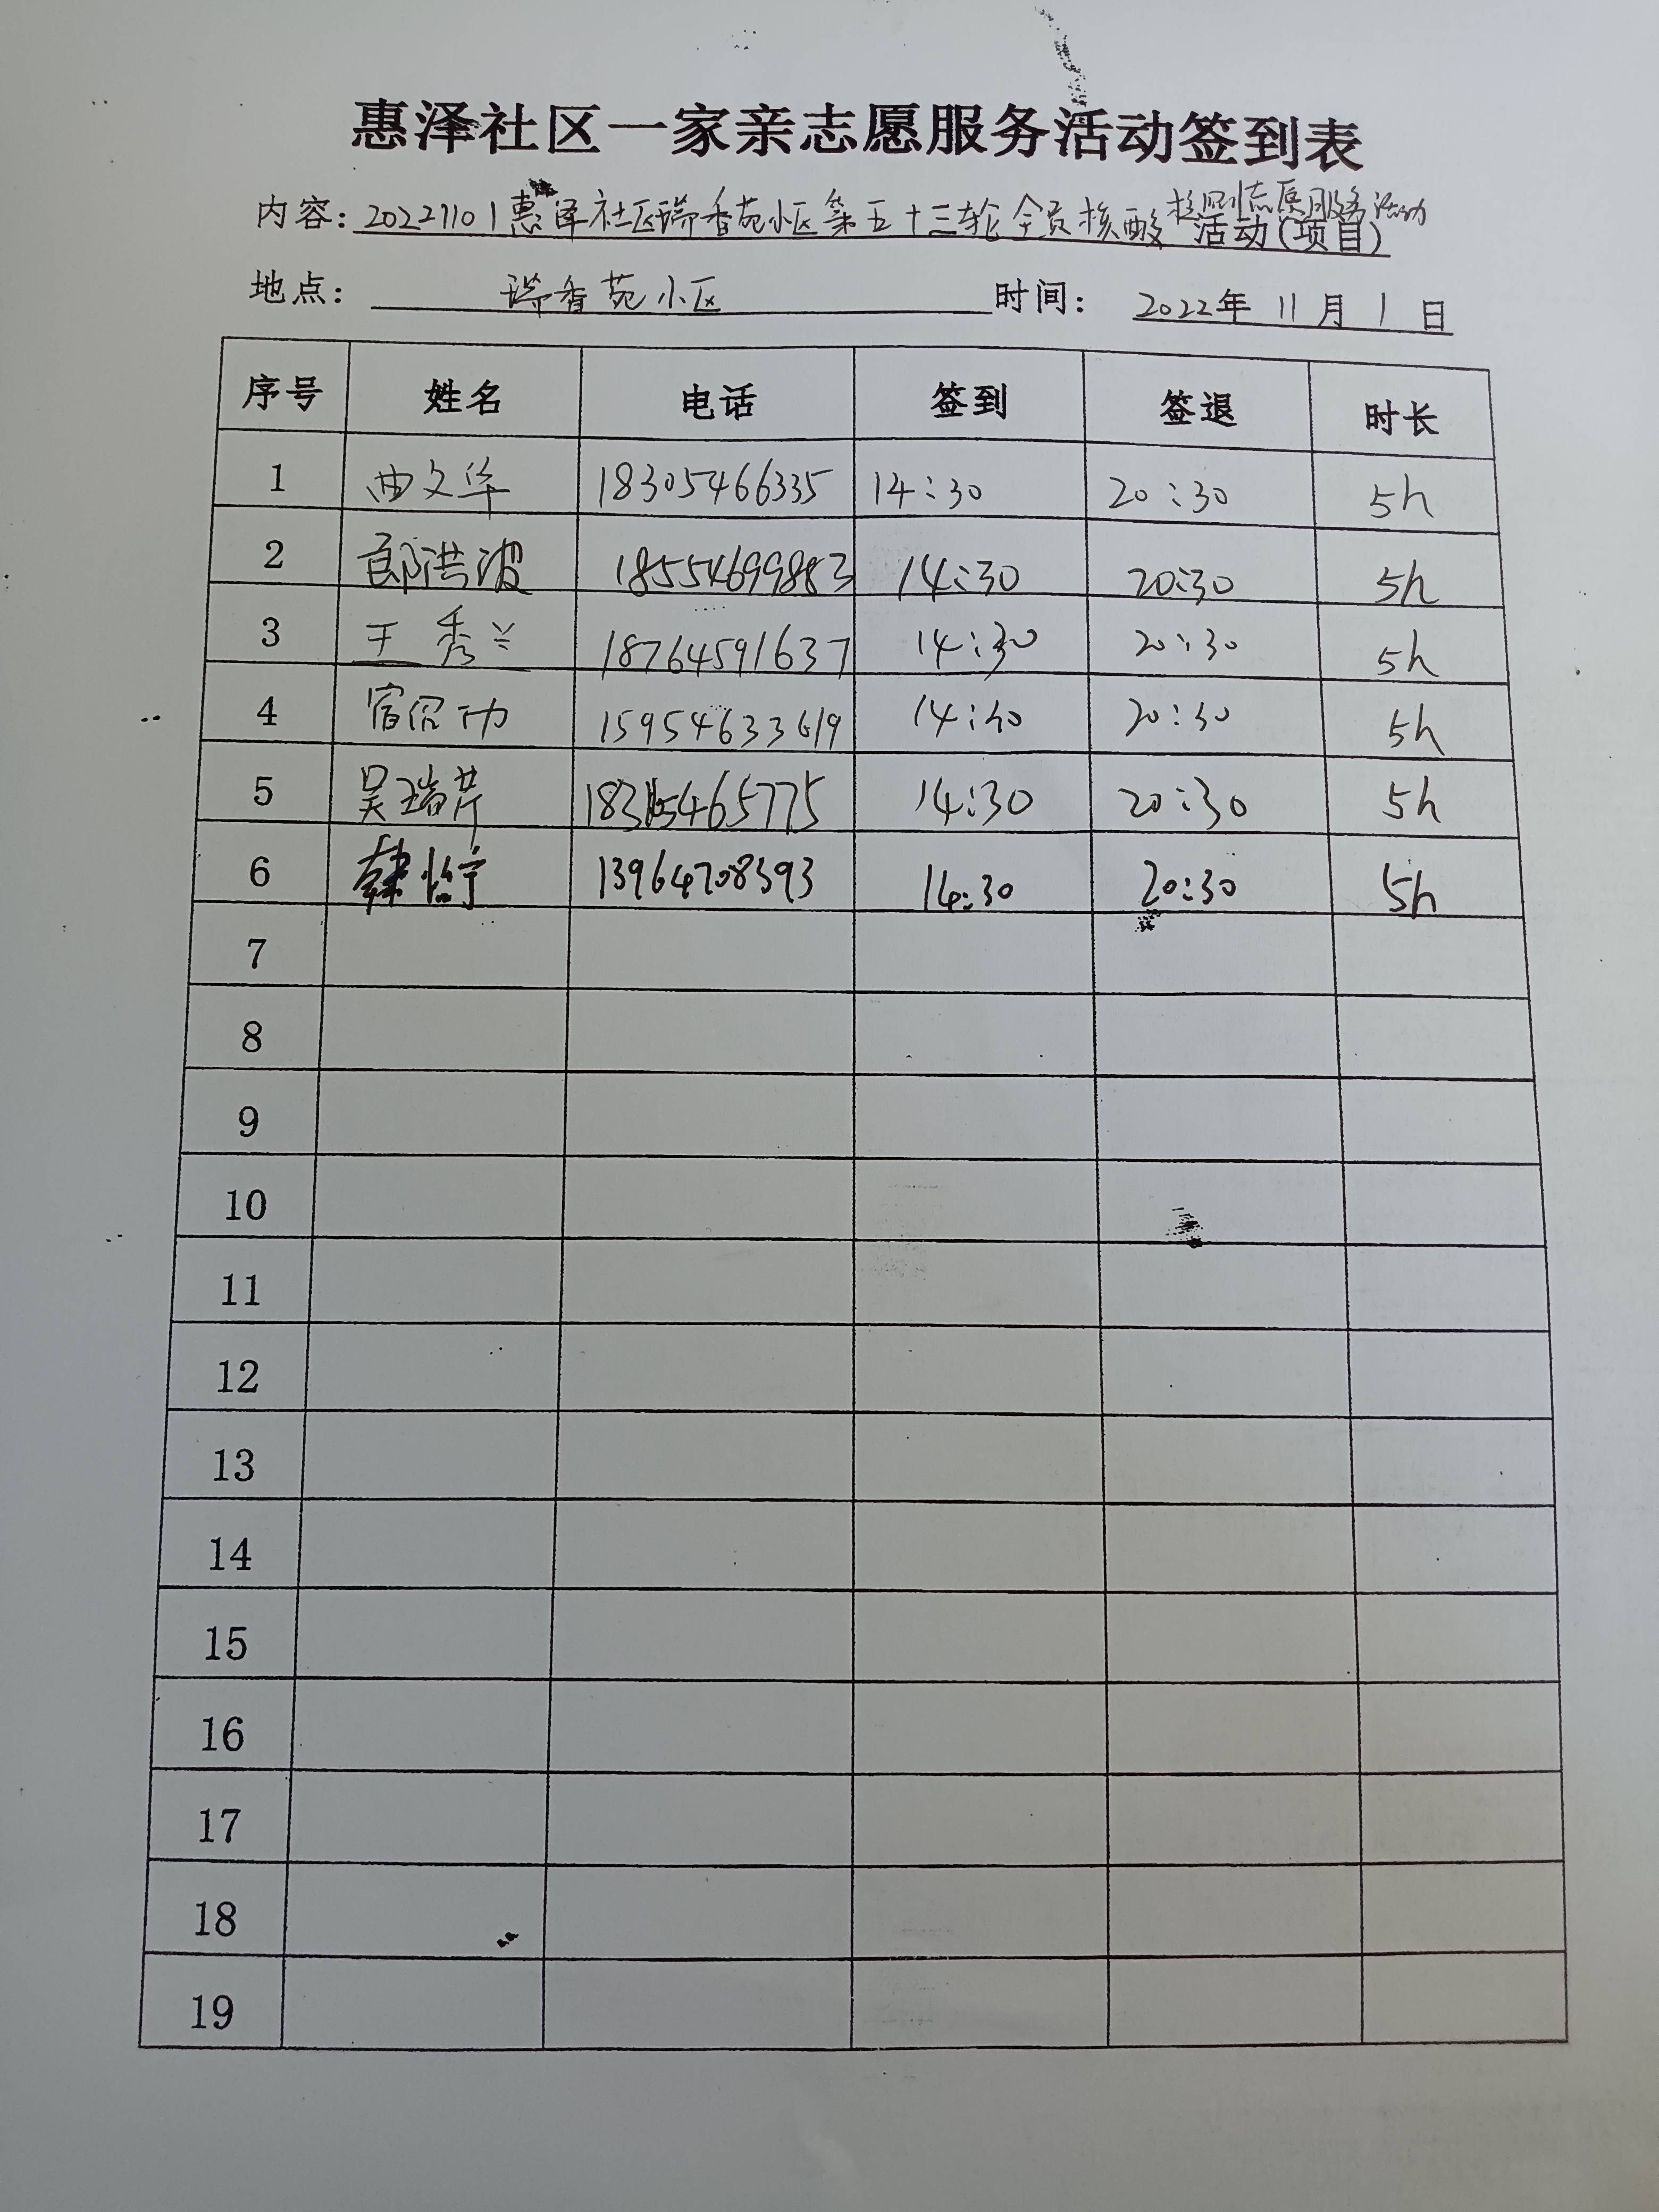 惠泽社区一家亲志愿服务活动签到表
内容：20221101惠泽社区瑞香苑小区第五十三轮全员核酸检测志愿服务活动 活动(项目)
地点： 瑞香苑小区 时间： 2022年 11月 1日
序号 姓名 电话 签到 签退 时长
1 曲文华 18305466335 14:30 20:30 5h
2 郎洪波 18554699883 14:30 20:30 5h
3 王秀兰 18764591637 14:30 20:30 5h
4 宿 功 15954633619 14:30 20:30 5h
5 吴瑞芹 14:30 20:30 5h
6 韩怡宁 13964708393 14:30 20:30 5h
7
8
9
10
11
12
13
14
15
16
17
18
19